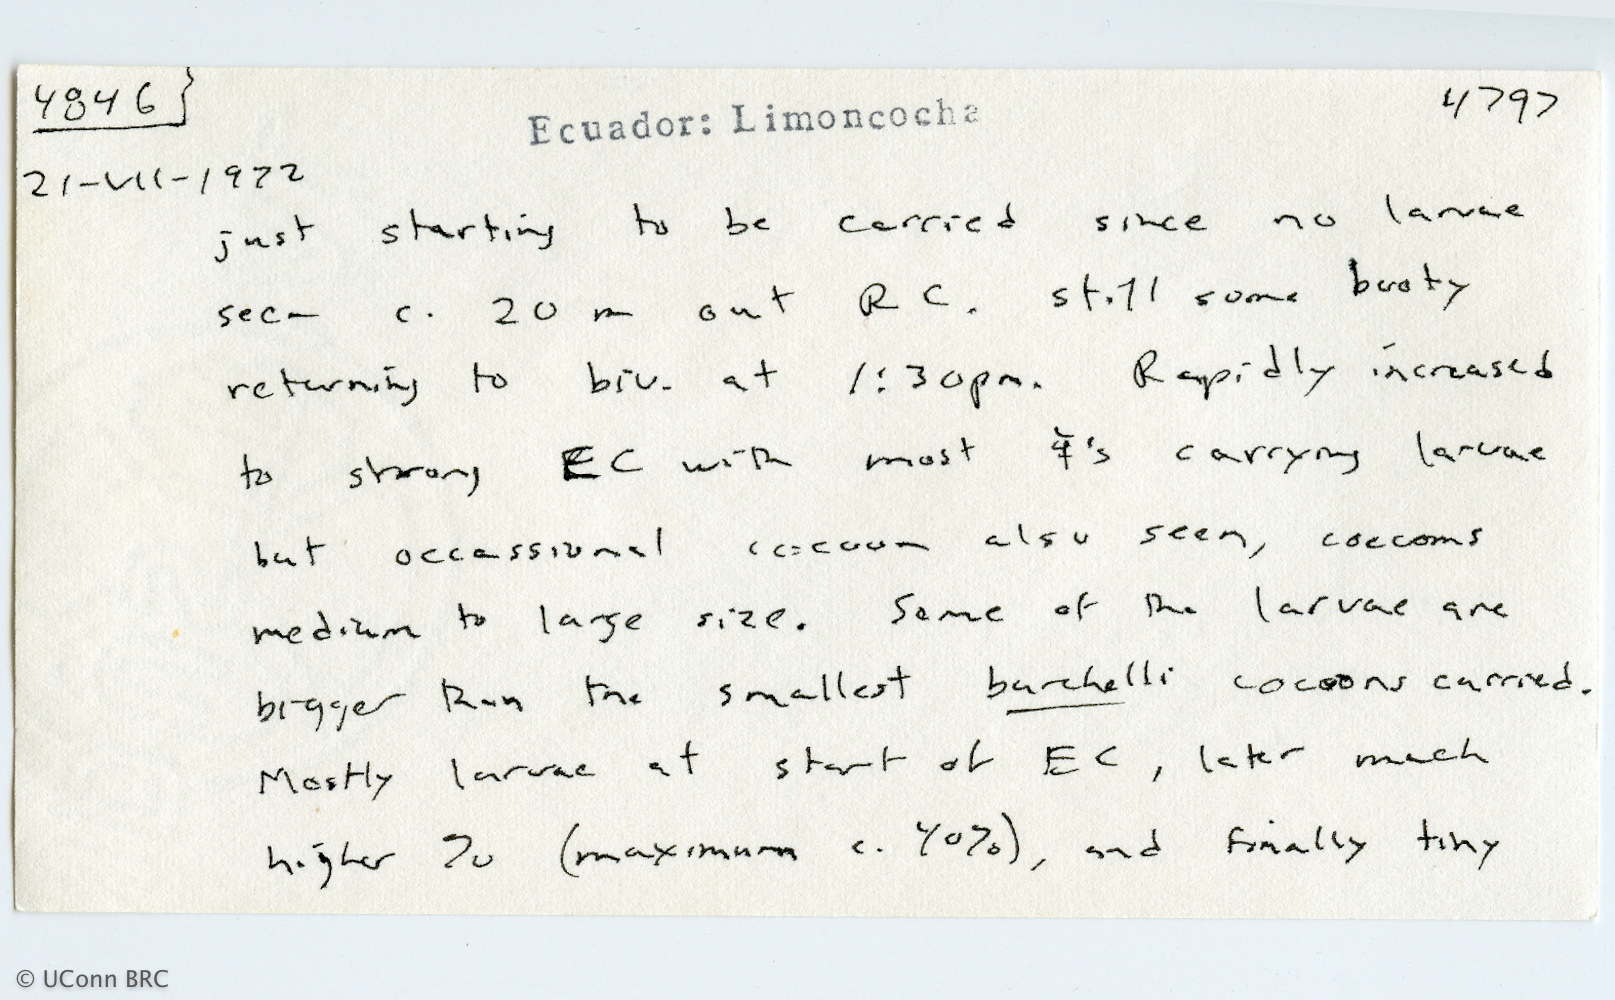 4846}
Ecuador: Limoncocha
4797
21-VII-1972
just starting to be carried since no larvae
seen c. 20 m out RC. still some booty
returning to biv. at 1:30pm. Rapidly increased
to strong EC with most ☿'s carrying larvae
but occassional cocoon also seen, coccoms
medium to large size. Some of the larvae are
bigger than the smallest burchelli cocoons carried.
Mostly larvae at start of EC, later much
higher % (maximum c. 40%), and finally tiny
© UConn BRC